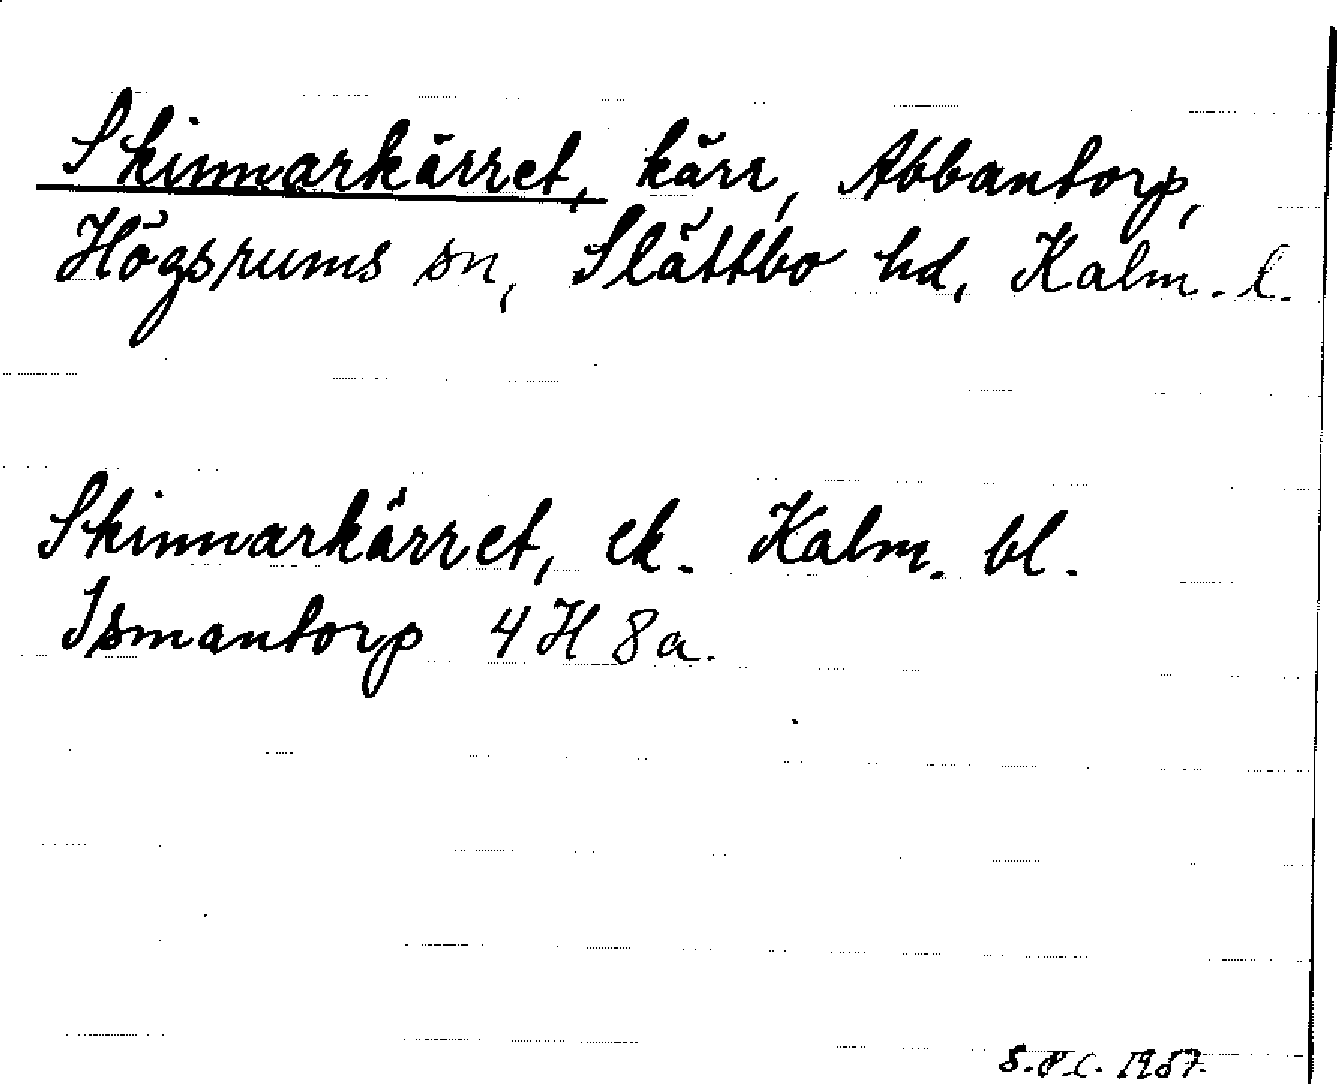 Skinnarkärret, kärr, Abbantorp,
Högsrums sn, Slättbo hd, Kalm. l.
Skinnarkärret, ek. Kalm. bl.
Ismantorp 4 H 8a.
1957.